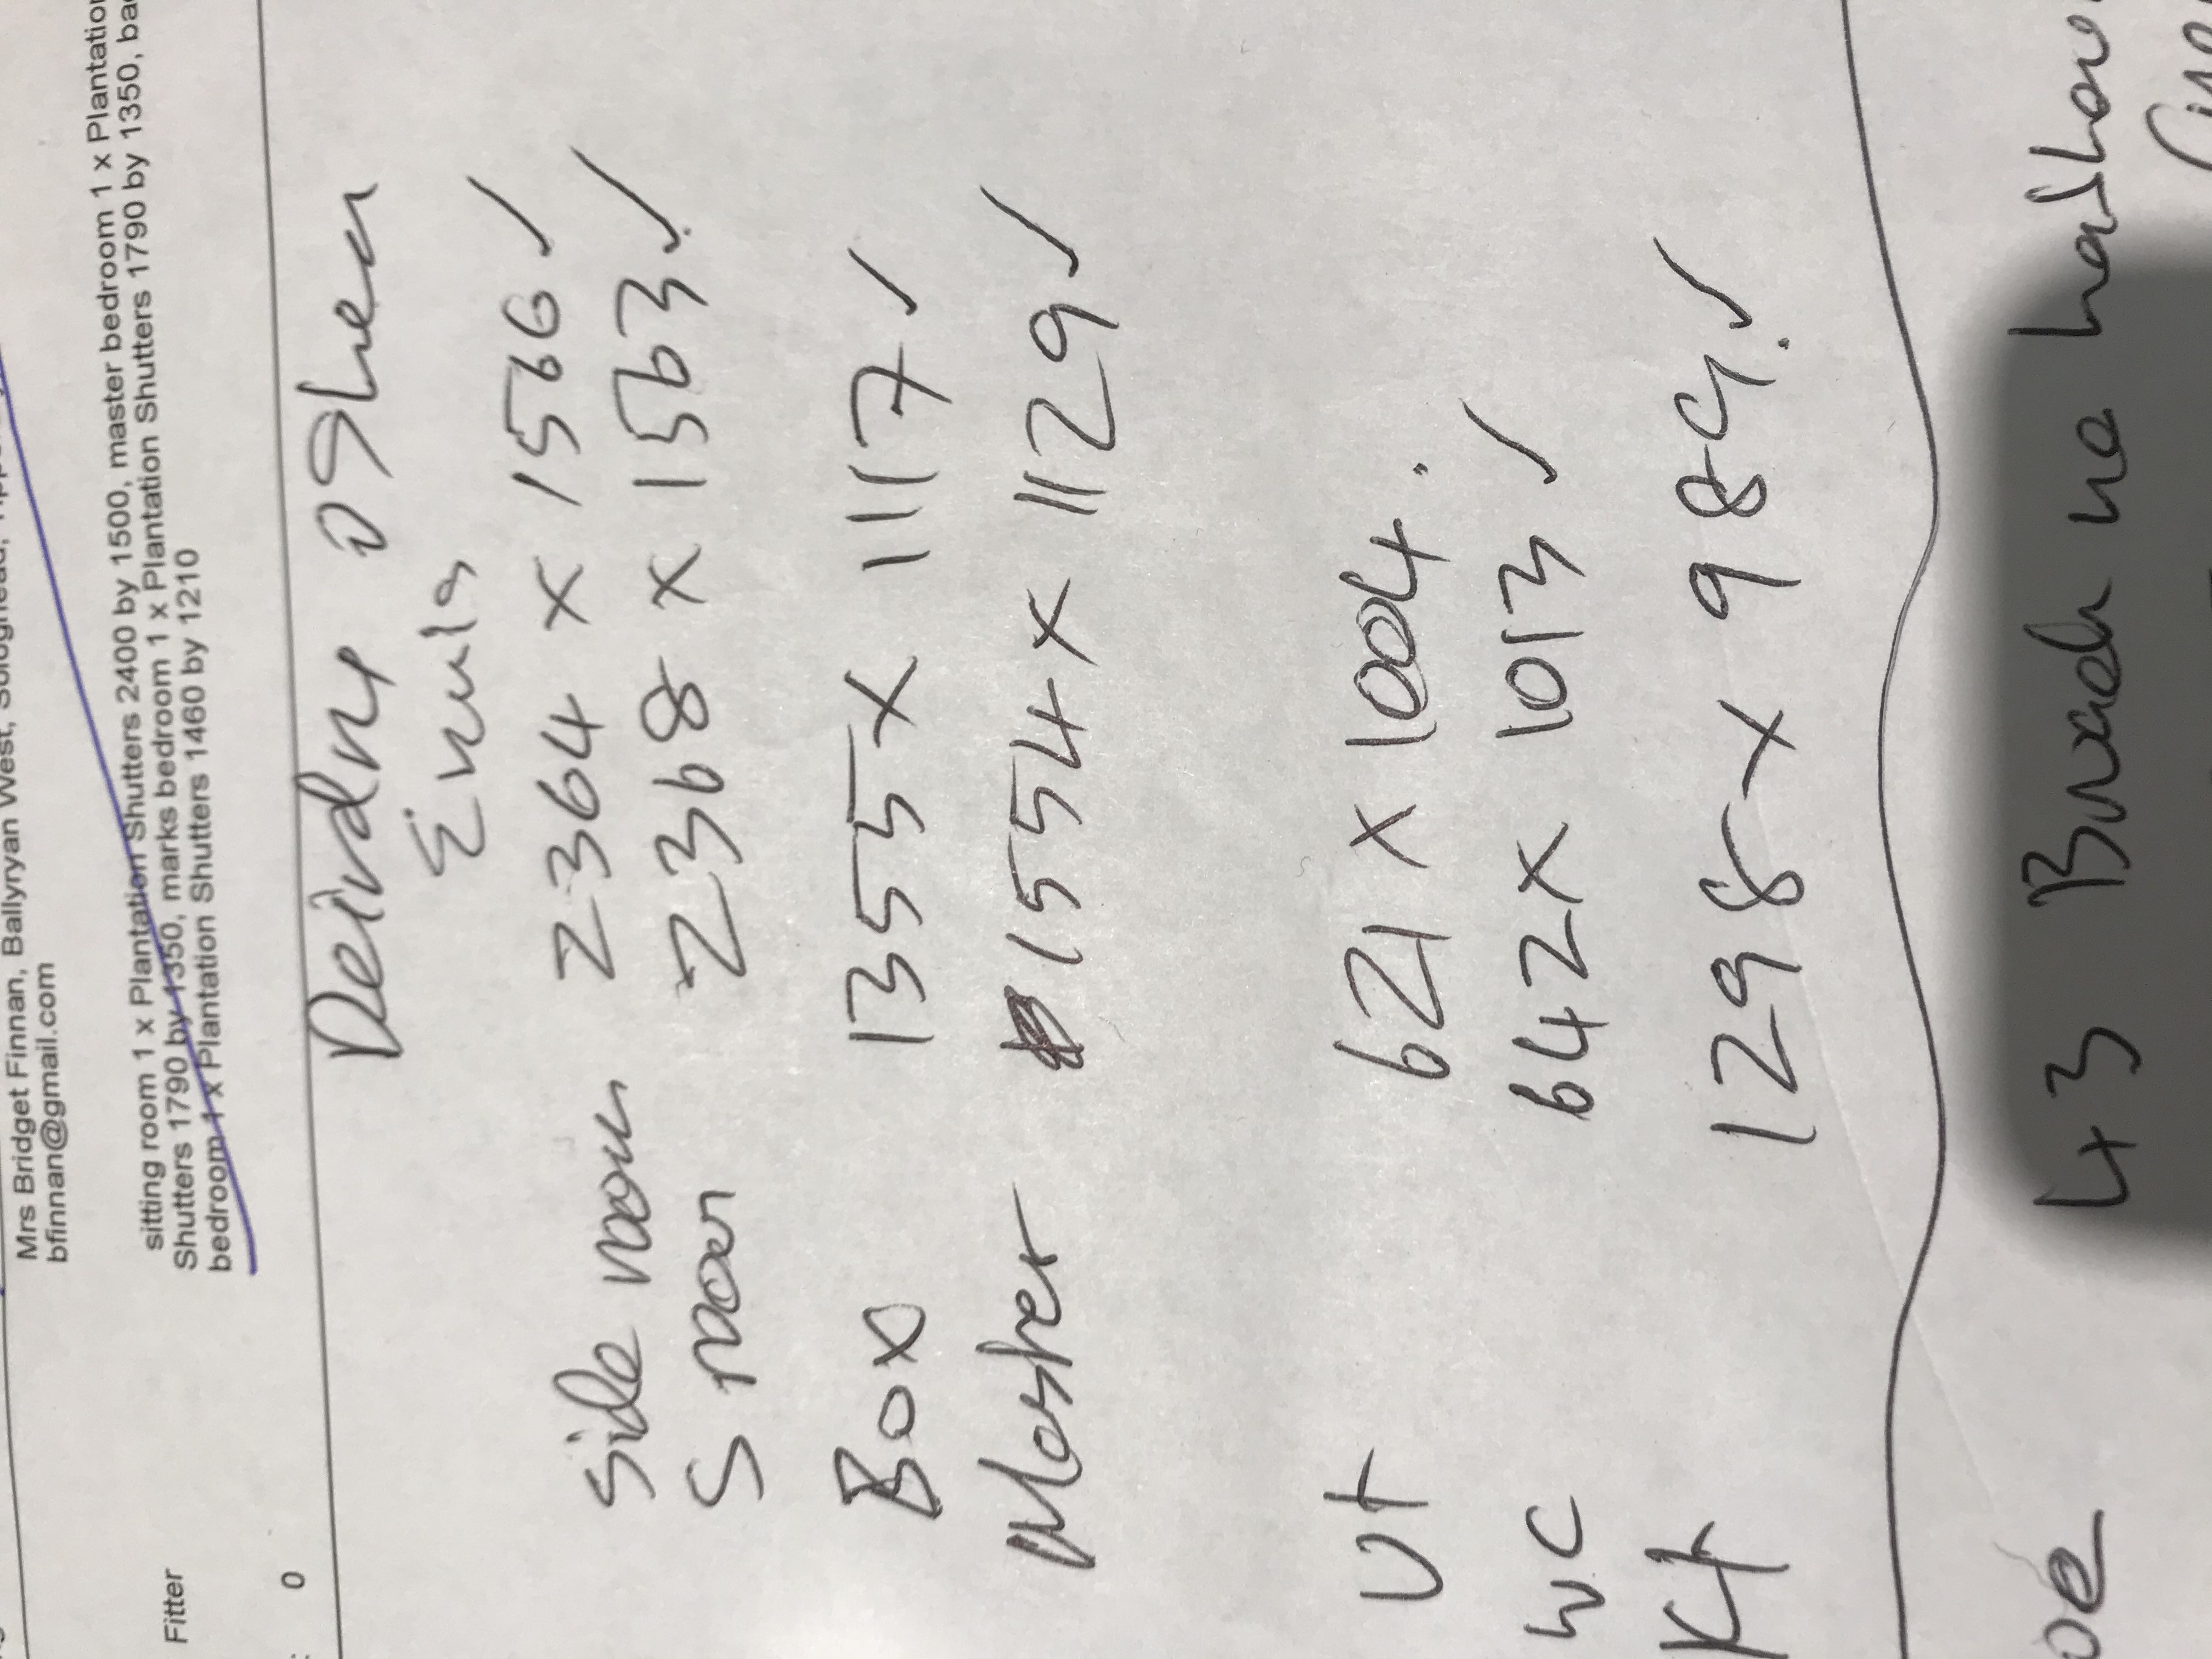 Mrs Bridget Finnan, Ballyryan West,
bfinnan@gmail.com
sitting room 1 x Plantation Shutters 2400 by 1500, master bedroom 1 x Plantation
Shutters 1790 by 1350, marks bedroom 1 x Plantation Shutters 1790 by 1350,
bedroom 1 x Plantation Shutters 1460 by 1210
Fitter
0
Deirdre O Shea
Ennis
Side room 2364 x 1566 ✓
S room 2368 x 1563 ✓
Box 1355 x 1117 ✓
Master 1554 x 1129 ✓
Ut 621 x 1004.
WC 642 x 1013 ✓
Kt 1298 x 989. ✓
43 Bruach na